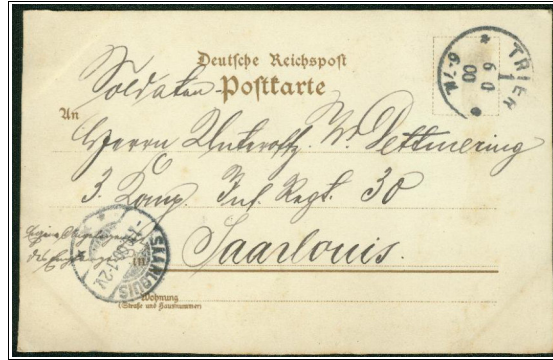 Deutsche Reichspost
Soldaten- Postkarte
An
Herrn Unteroffz. W. Dettmering
3. Comp. Inf. Regt. 30
Saarlouis.
Wohnung
(Straße und Hausnummer)
TRIER
1
6
00
6-7N.
SAARLOUIS
1-2V